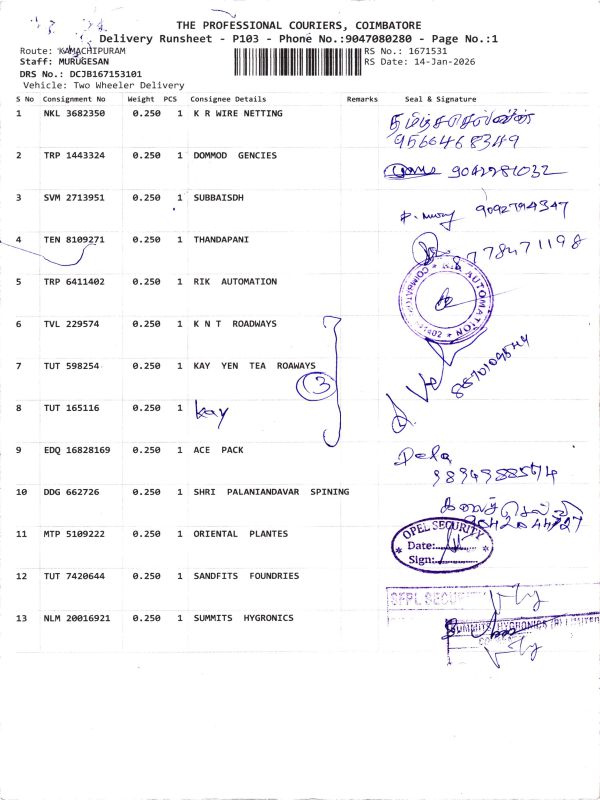 THE PROFESSIONAL COURIERS, COIMBATORE
Delivery Runsheet - P103 - Phone No.:9047080280 - Page No.:1
Route: KAMACHIPURAM
RS No.: 1671531
Staff: MURUGESAN
RS Date: 14-Jan-2026
DRS No.: DCJB167153101
Vehicle: Two Wheeler Delivery
S No Consignment No Weight PCS Consignee Details Remarks Seal & Signature
1 NKL 3682350 0.250 1 K R WIRE NETTING
9566468349
2 TRP 1443324 0.250 1 DOMMOD GENCIES
9042981032
3 SVM 2713951 0.250 1 SUBBAISDH
9092794347
4 TEN 8109271 0.250 1 THANDAPANI
5 TRP 6411402 0.250 1 RIK AUTOMATION
RIK AUTOMATION
6 TVL 229574 0.250 1 K N T ROADWAYS
7 TUT 598254 0.250 1 KAY YEN TEA ROAWAYS
3
8 TUT 165116 0.250 1 kay
9 EDQ 16828169 0.250 1 ACE PACK
10 DDG 662726 0.250 1 SHRI PALANIANDAVAR SPINING
11 MTP 5109222 0.250 1 ORIENTAL PLANTES
OPEL SECURITY
Date:
Sign:
12 TUT 7420644 0.250 1 SANDFITS FOUNDRIES
SFPL SECURITY
13 NLM 20016921 0.250 1 SUMMITS HYGRONICS
SUMMITS HYGRONICS (P) LIMITED